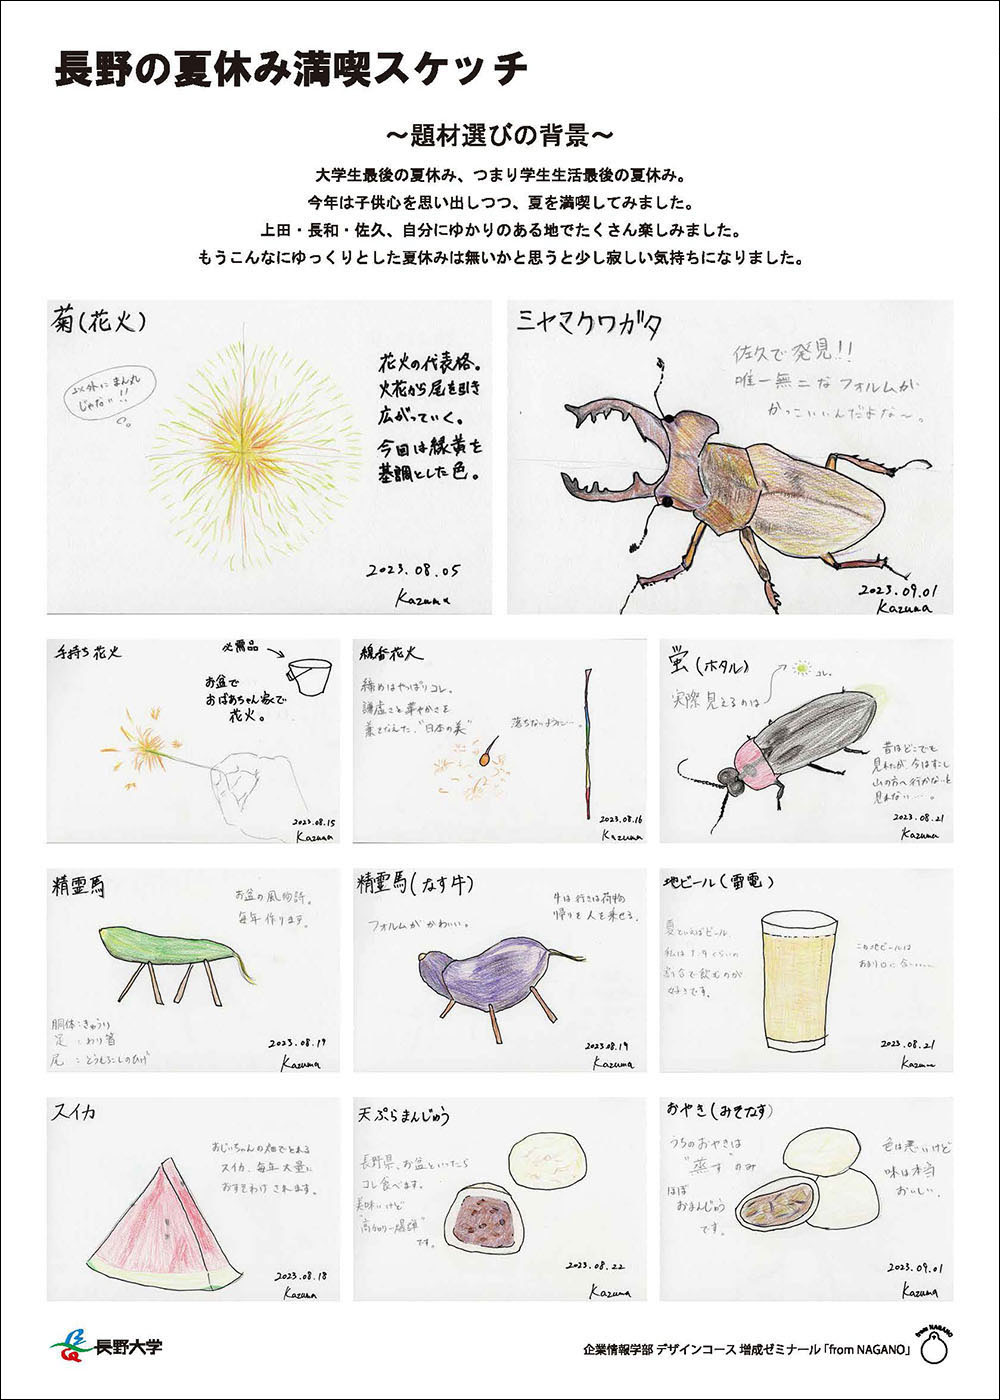 長野の夏休み満喫スケッチ
～題材選びの背景～
大学生最後の夏休み、つまり学生生活最後の夏休み。
今年は子供心を思い出しつつ、夏を満喫してみました。
上田・長和・佐久、自分にゆかりのある地でたくさん楽しみました。
もうこんなにゆっくりとした夏休みは無いかと思うと少し寂しい気持ちになりました。
菊(花火)
以外にまん丸
じゃない!!
花火の代表格。
火花から尾を引き
広がっていく。
今回は緑黄を
基調とした色。
2023.08.05
Kazuma
ミヤマクワガタ
佐久で発見!!
唯一無二なフォルムが
かっこいいんだよな〜。
2023.09.01
Kazuma
手持ち花火
必需品
お盆で
おばあちゃん家で
花火。
2023.08.15
Kazuma
線香花火
締めはやっぱりコレ。
謙虚さと華やかさを
兼ねそなえた、"日本の美"
落ちないように…。
2023.08.16
Kazuma
蛍(ホタル)
コレ。
実際見えるのは
昔はどこでも
見れたが今はすこし
山の方へ行かないと
見れない…。
2023.08.21
Kazuma
精霊馬
お盆の風物詩。
毎年作ります。
胴体:きゅうり
足:わり箸
尾:とうもろこしのひげ
2023.08.19
Kazuma
精霊馬(なす牛)
フォルムがかわいい。
牛は行きは荷物
帰りを人を乗せる。
2023.08.19
Kazuma
地ビール(雷電)
夏といえばビール。
私は1:9くらいの
割合で飲むのが
好きです。
この地ビールは
あまり口に合い……
2023.08.21
Kazuma
スイカ
おじいちゃんの畑でとれる
スイカ、毎年大量に
おすそわけされます。
2023.08.18
Kazuma
天ぷらまんじゅう
長野県、お盆といったら
コレ食べます。
美味いけど
"高カロリー爆弾"
です。
2023.08.22
Kazuma
おやき(みそなす)
うちのおやきは
"蒸す"のみ
ほぼ
おまんじゅう
です。
色は悪いけど
味は本当
おいしい。
2023.09.01
Kazuma
長野大学
企業情報学部 デザインコース 増成ゼミナール「from NAGANO」
from NAGANO